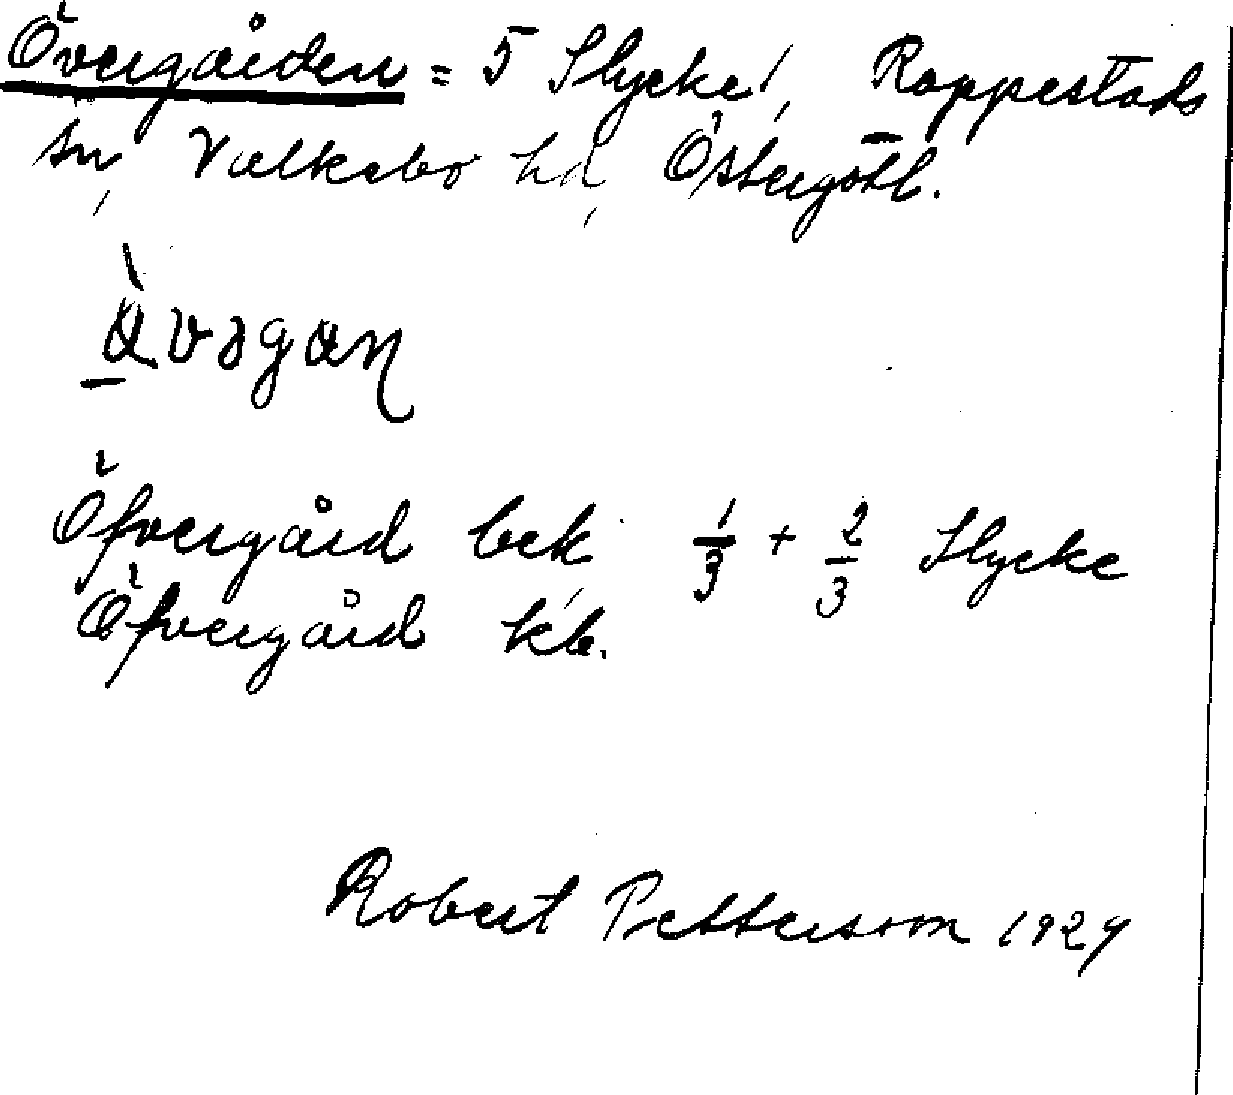 Övergården = 5 Slycke, Rappestads
sn, Valkebo hd, Östergötl.
Öfvergård bek. 1/3 + 2/3 Slycke
Öfvergård kb.
Robert Pettersson 1929